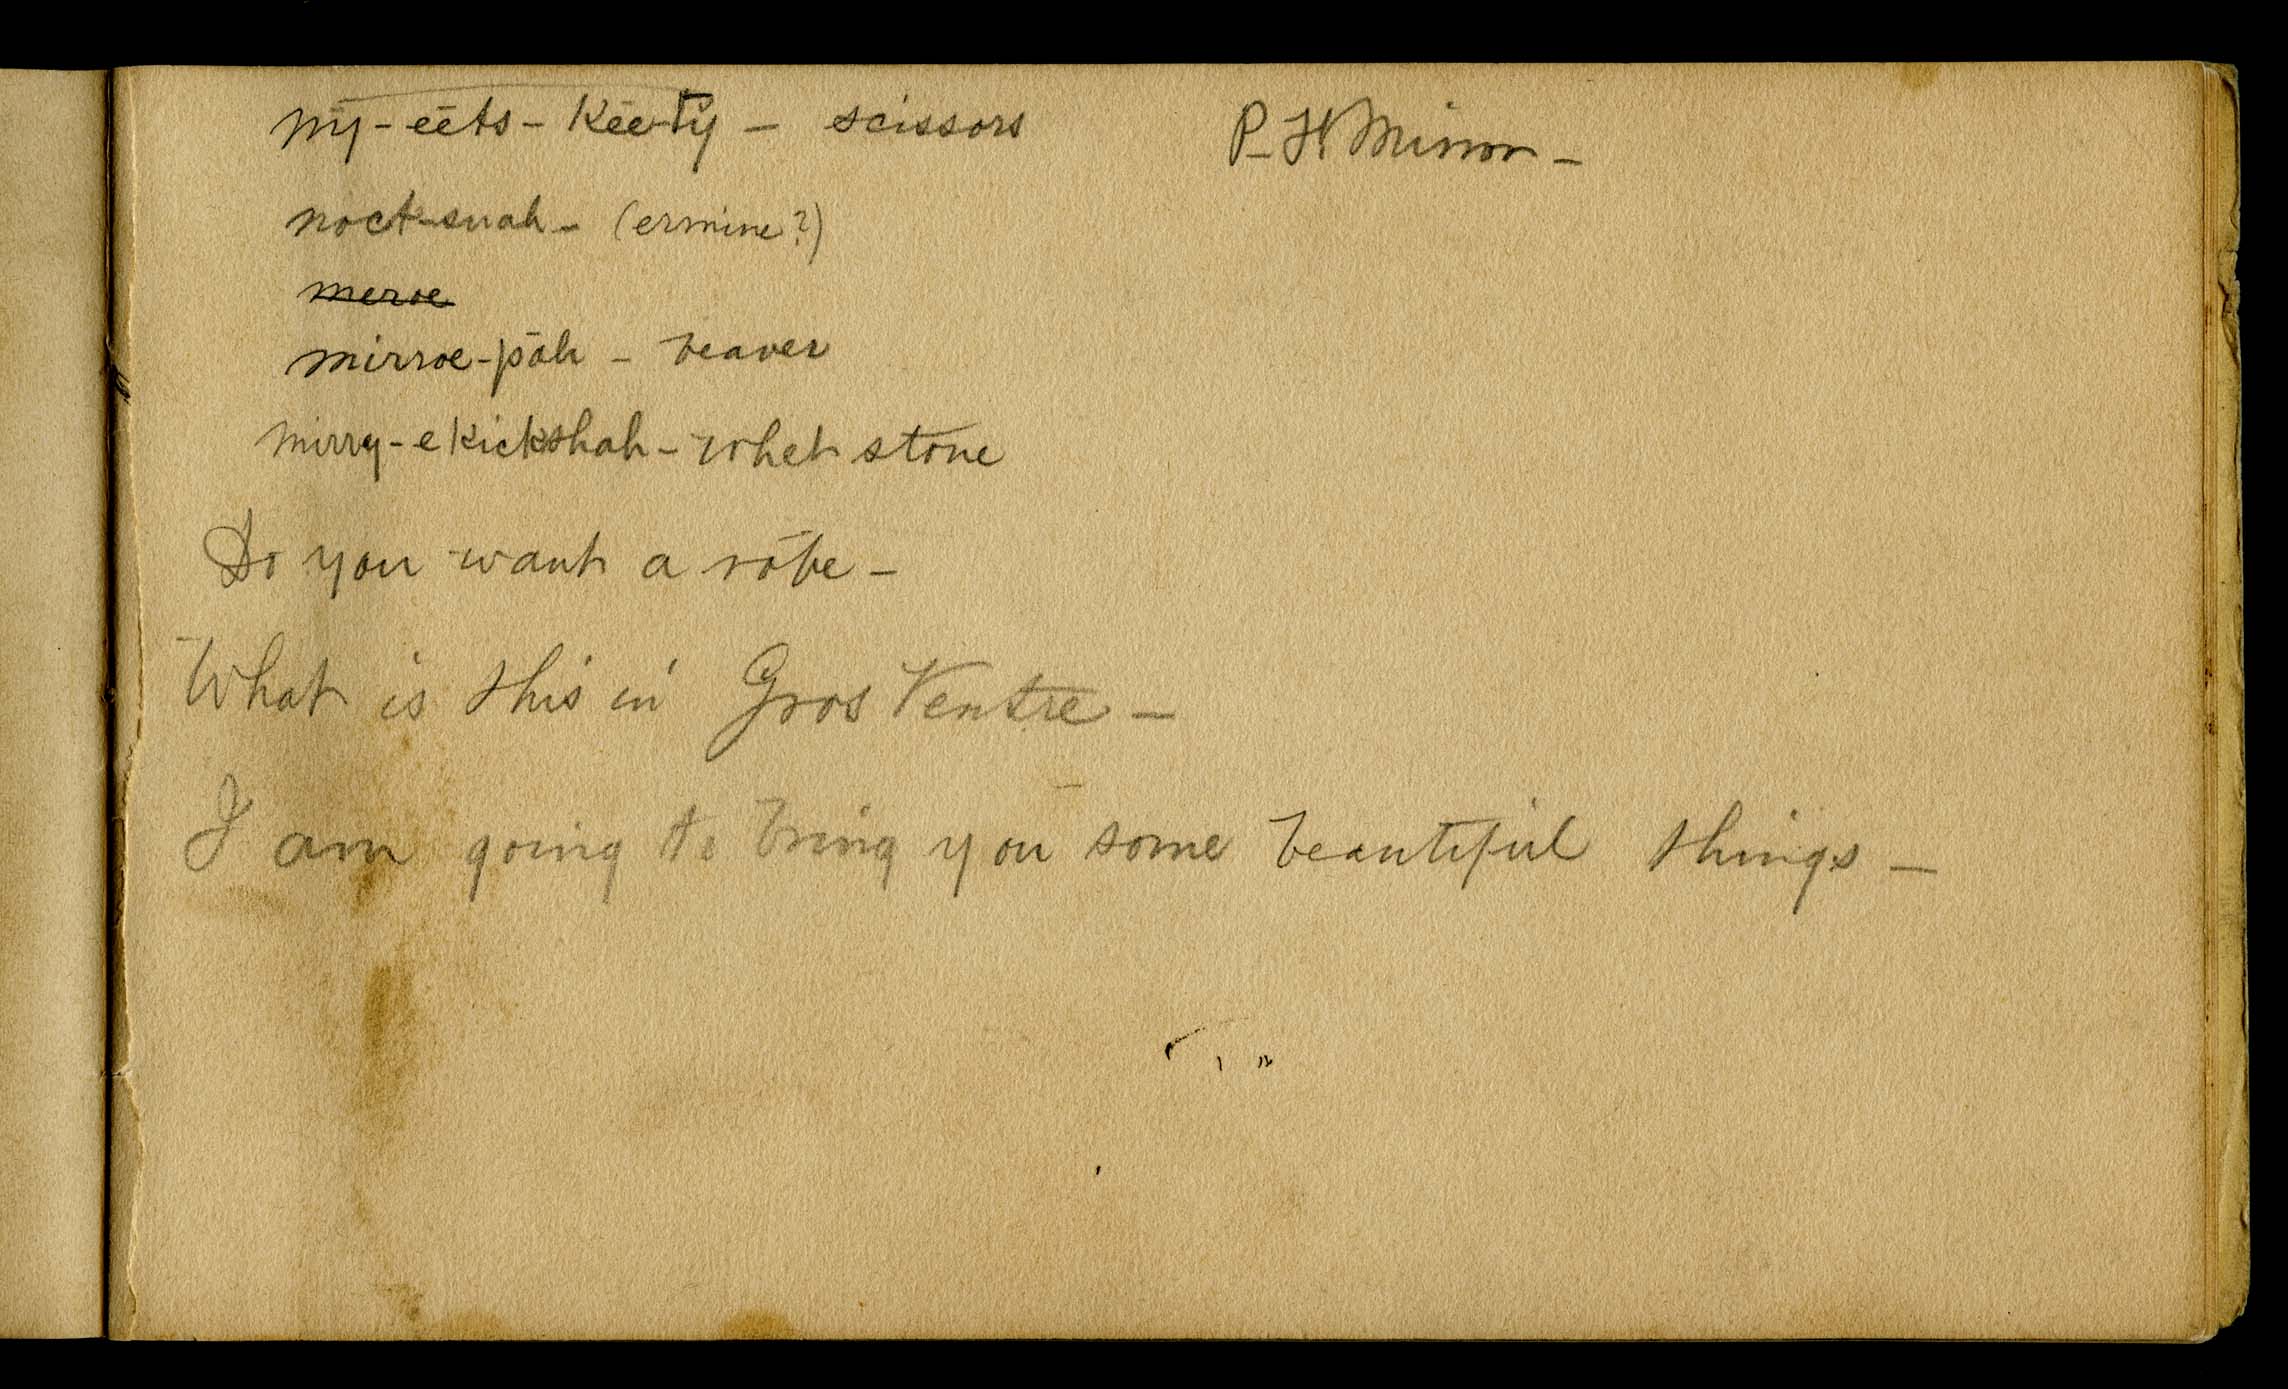 my-ēēts-Kēē-tȳ - scissors
P-H Minor -
noct-suah - (ermine?)
meroe
mirroe-pāh - beaver
mirry-e Kickshah - whet stone
Do you want a robe -
What is this in Gros Ventre -
I am going to bring you some beautiful things -